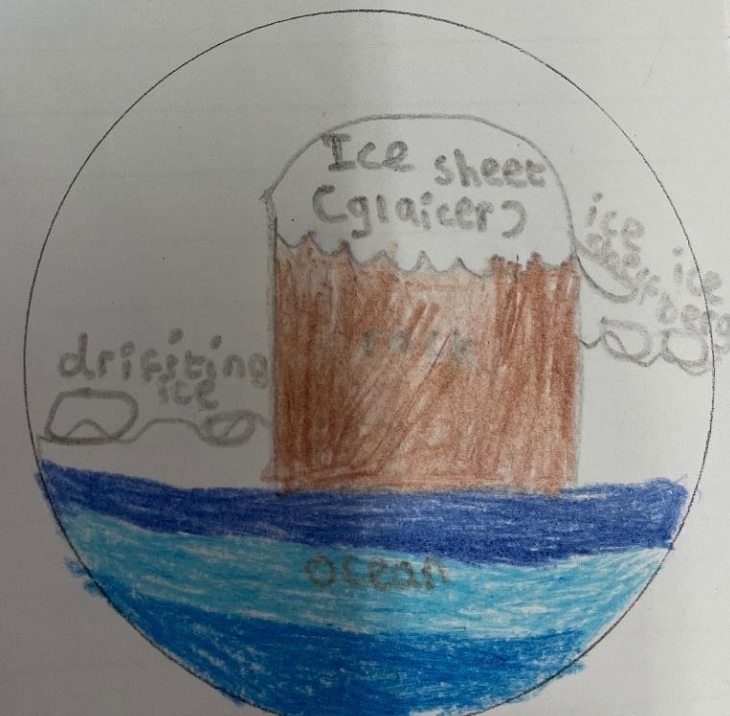 Ice sheet
(glaicer)
ice
shelf
ice
berg
rock
drifiting
ice
ocean